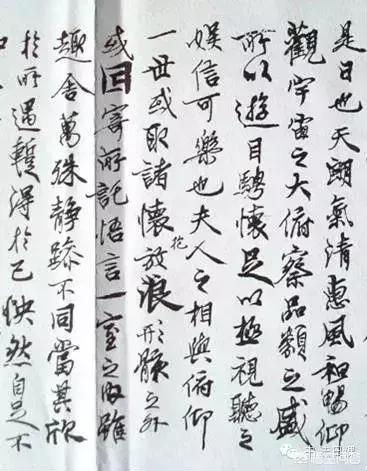 是日也天朗氣清惠風和暢仰
觀宇宙之大俯察品類之盛
所以遊目騁懷足以極視聽之
娛信可樂也夫人之相與俯仰
一世或取諸懷抱放浪形骸之外
或因寄所託悟言一室之內雖
趣舍萬殊靜躁不同當其欣
於所遇蹔得於己怏然自足不